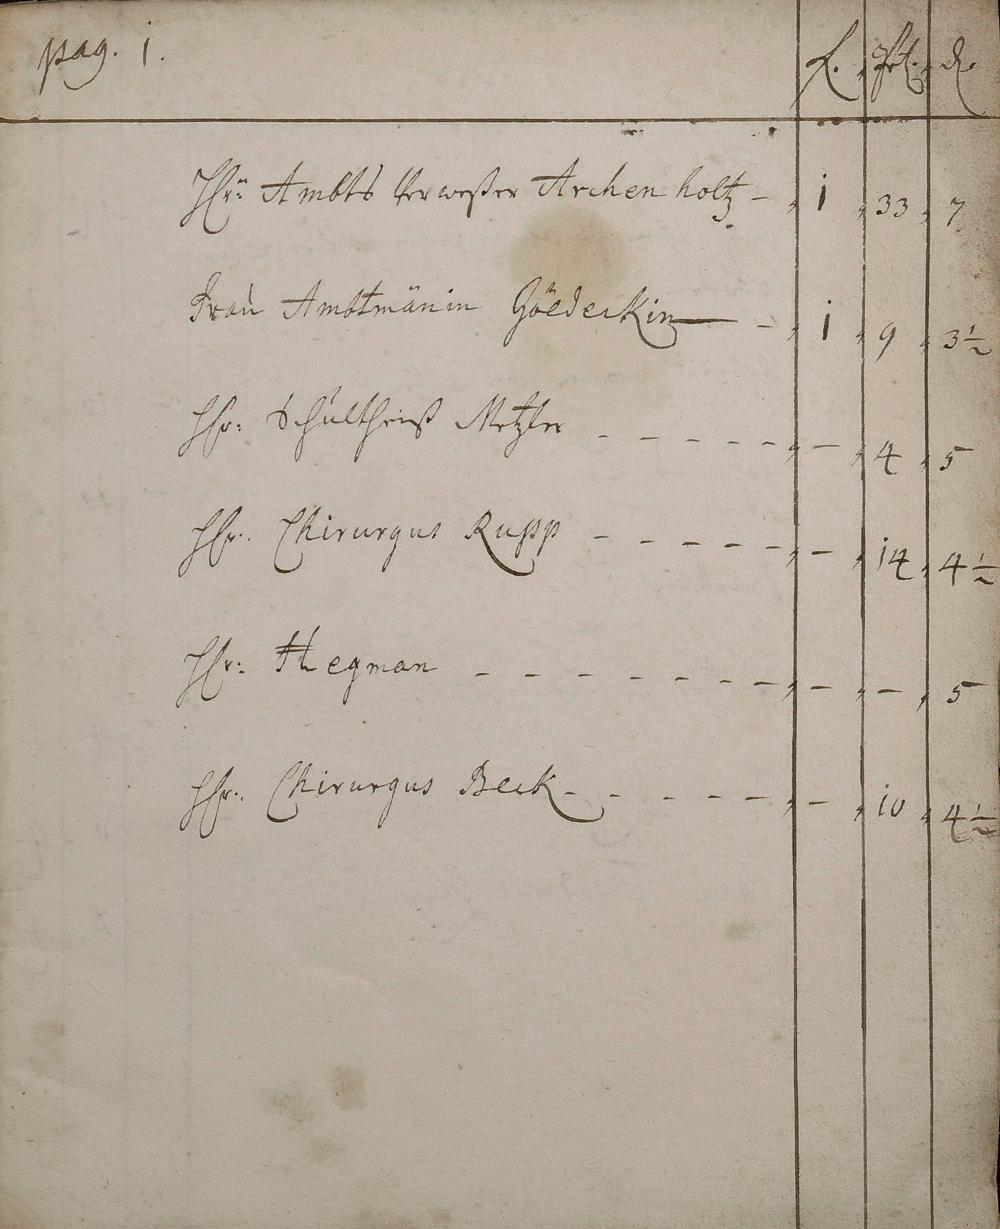 pag. 1. f. ₰
Hr: Ambts Verweßer Archenholtz - , 1 , 33 , 7
Frau Ambtmänin Göedeckin - , 1 , 9 , 3½
Hr: Schultheiß Metzler - - - - - , - , 4 , 5
Hr: Chirurgus Rupp - - - - - , - , 14 , 4½
Hr: Hegman - - - - - - - , - , - , 5
Hr: Chirurgus Beck - - - - - , - , 10 , 4½